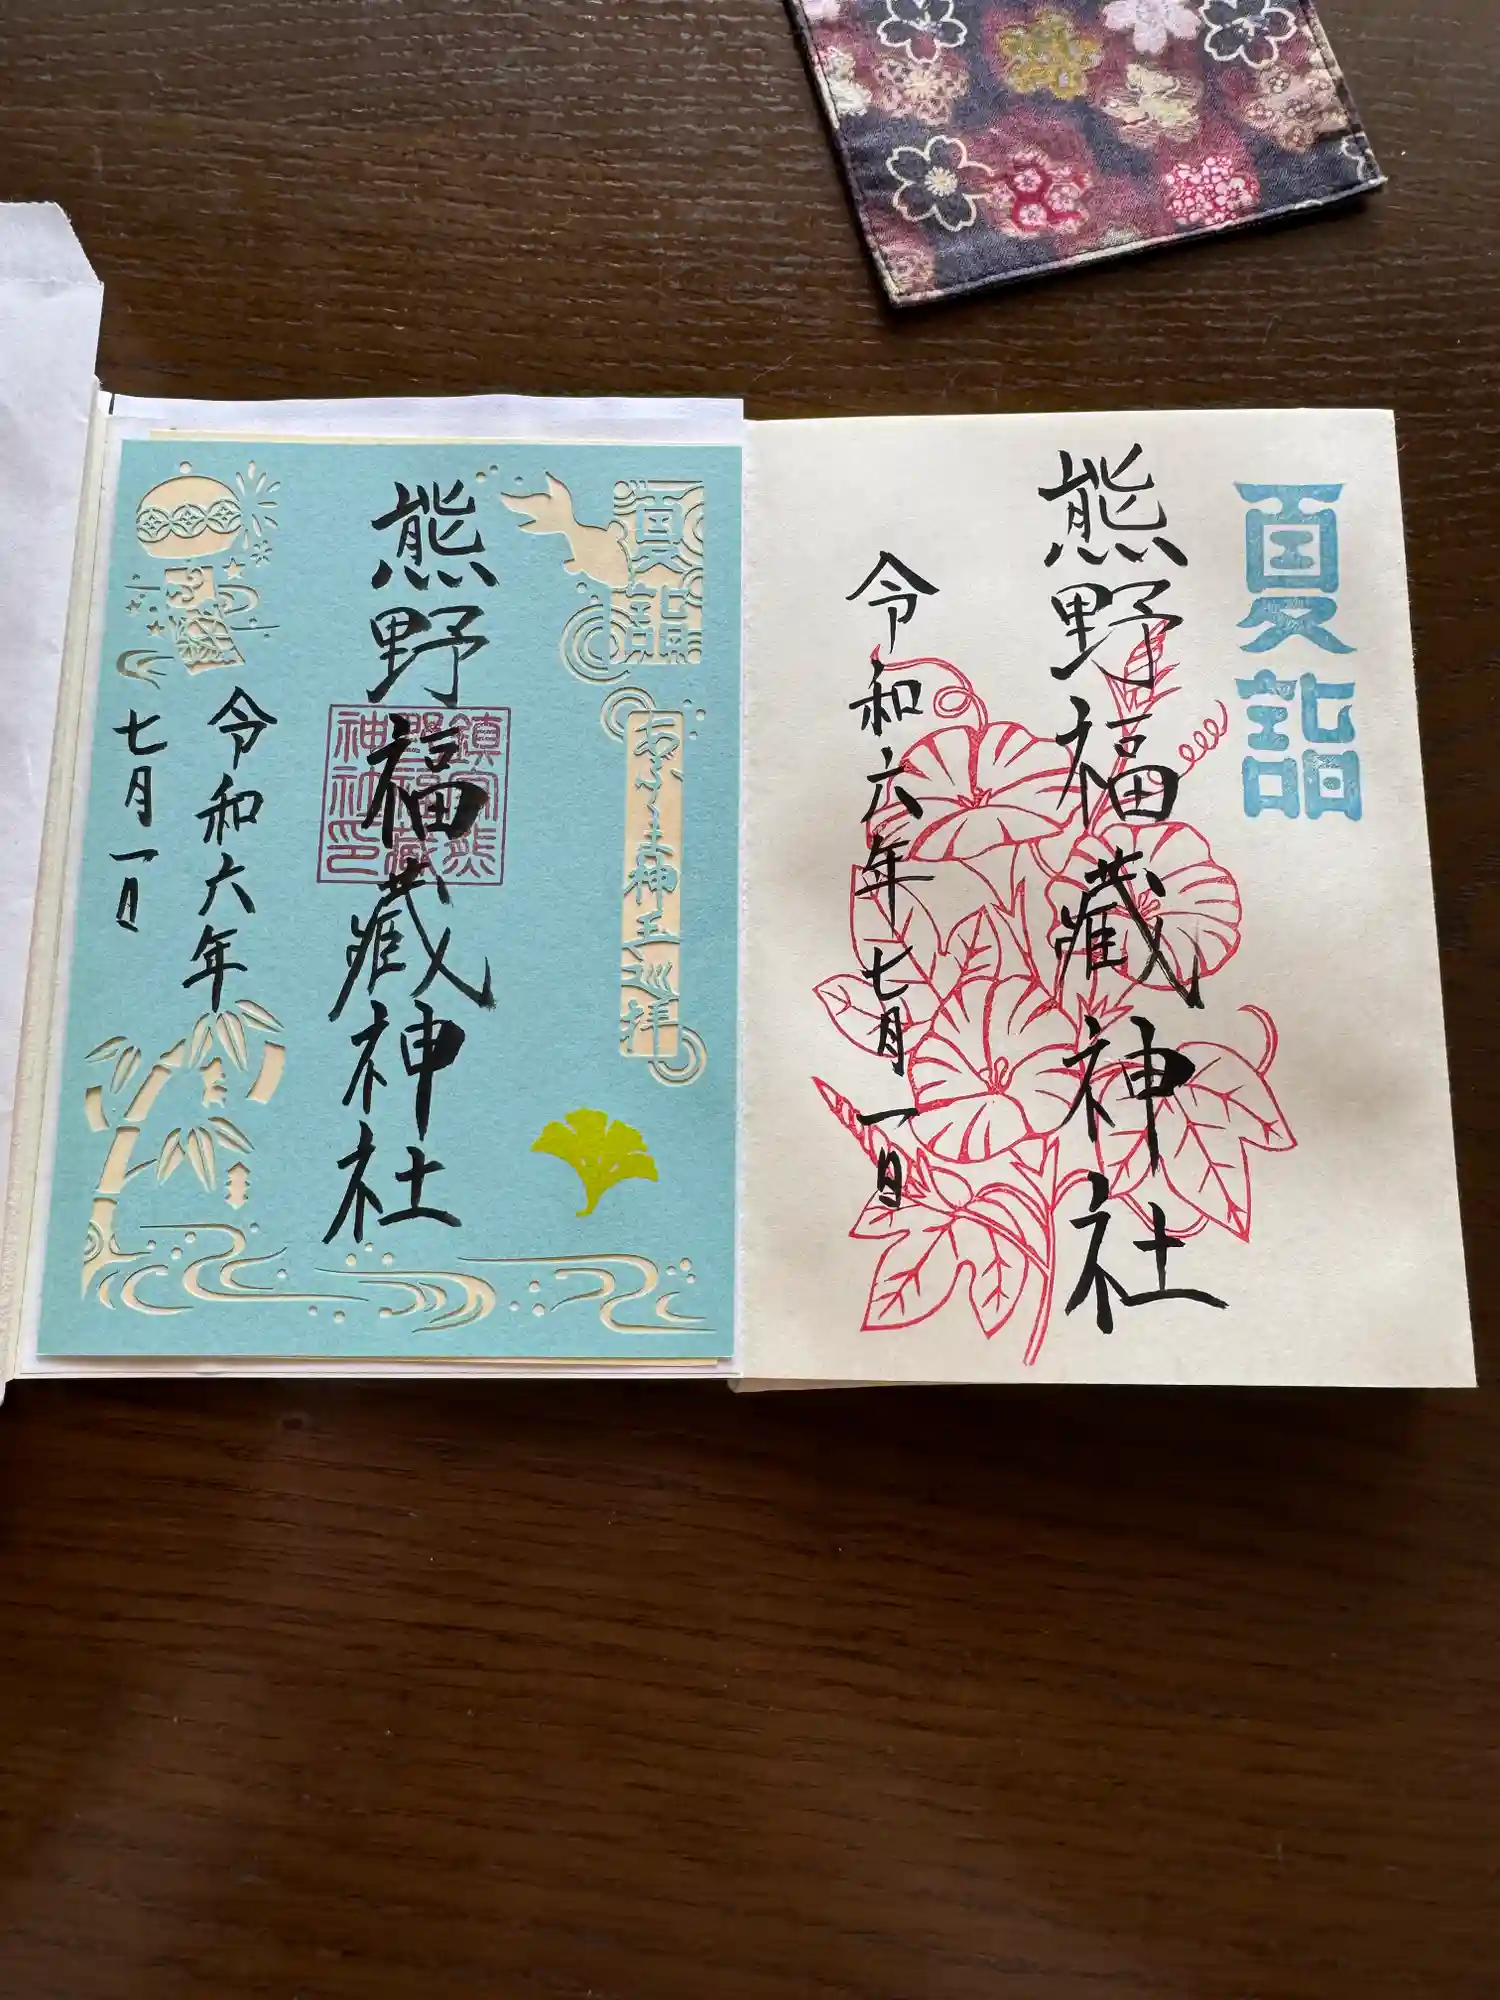 夏詣
熊野福藏神社
令和六年七月一日
夏詣
あしくま神玉巡拝
熊野福藏神社
鎮守熊
野福藏
神社印
令和六年
七月一日